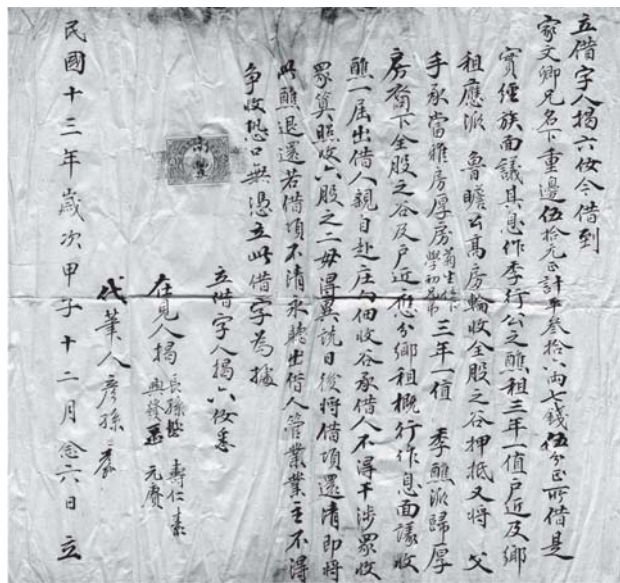 立借字人揭六妝今借到
家文卿兄名下重邊伍拾元正計平叁拾六両七錢伍分正所借是
實經族面議其息作季行公之醮租三年一值户近及鄉
租應派 魯瞻公髙房輪收全股之谷押抵又將 父
手承當雅房厚房菊生位下學初兄弟三年一值 季醮派歸厚
房畨下全股之谷及户近應分鄉租概行作息面議收
醮一屆出借人親自赴庄勻佃收谷承借人不得干涉眾收
眾算照收六股之二毋得異說日後將借項還清即將
此醮退還若借項不清永聽出借人管業業主不得
争收恐口無憑立此借字為據
南豐
立借字人揭六妝
在見人揭 長孫 壽仁
興發 元賡
代筆人彦孫
民國十三年歲次甲子十二月念六日 立